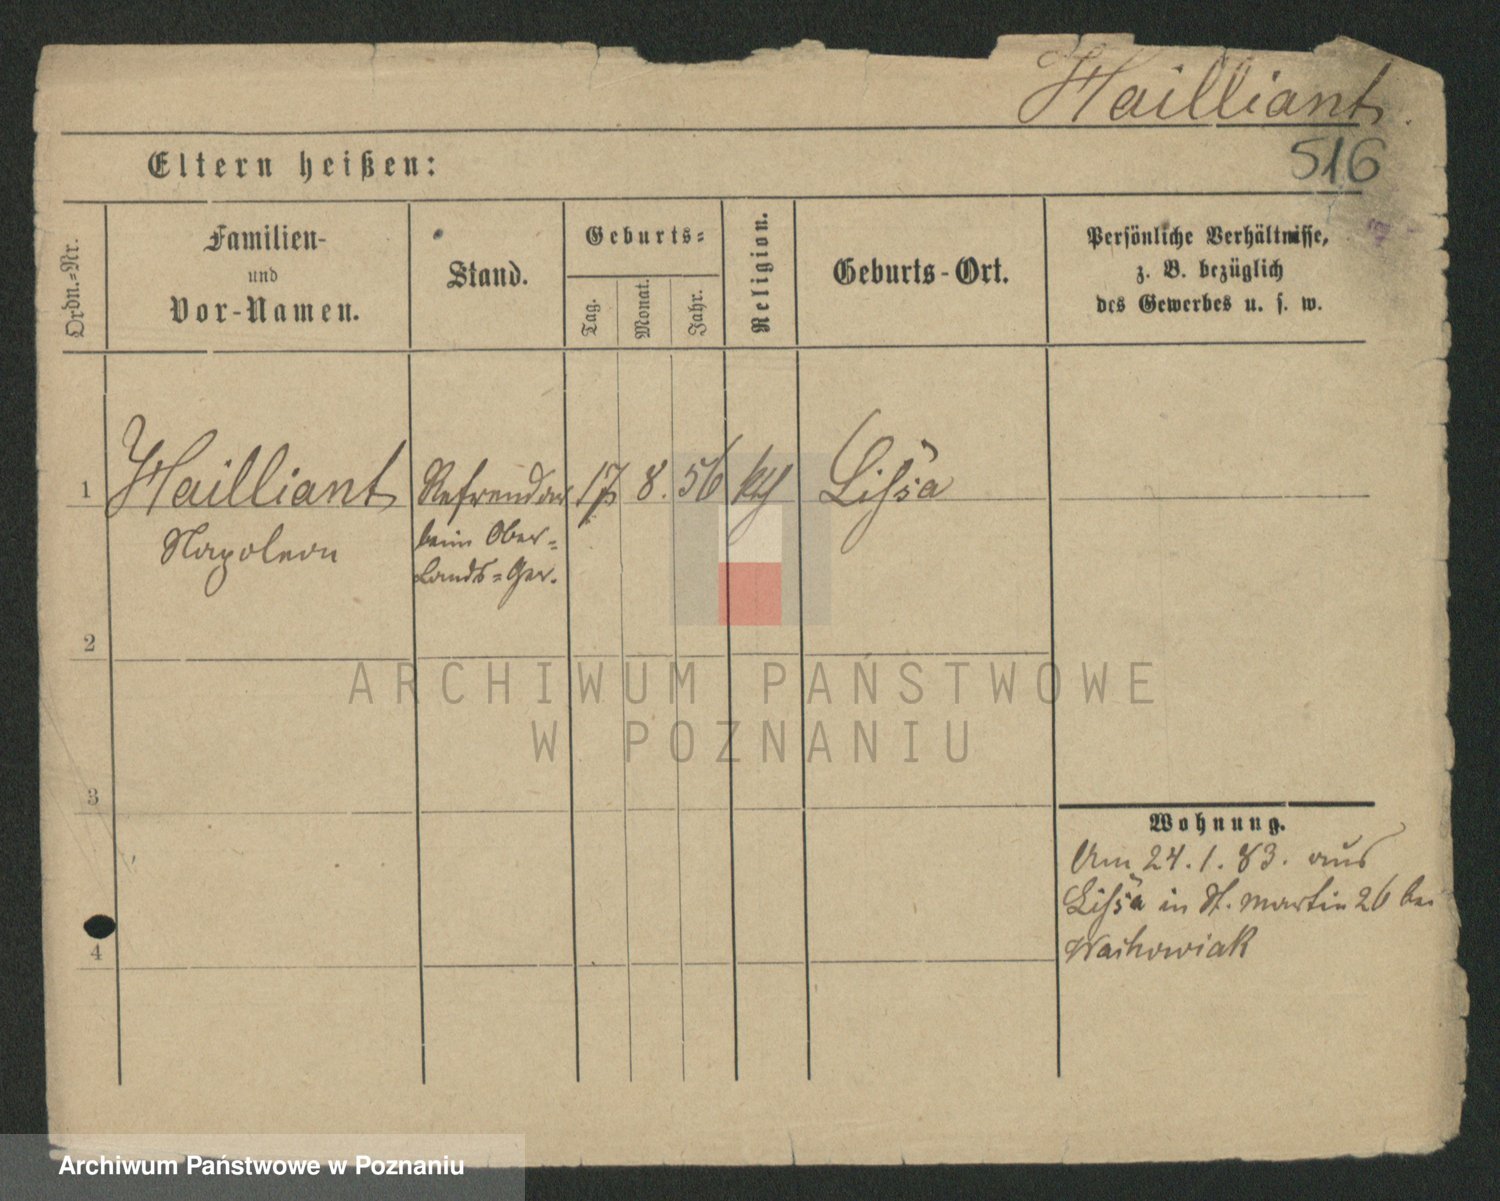 Hailliant.
516
Eltern heißen:
Ordn.=Nr.
Familien-
und
Vor-Namen.
Stand.
Geburts=
Tag.
Monat.
Jahr.
Religion.
Geburts-Ort.
Persönliche Verhältnisse,
z. B. bezüglich
des Gewerbes u. s. w.
1
Hailliant
Napoleon
Refrendar
beim Ober=
Lands=Ger.
17
8.
56
kth
Lissa
2
3
4
Wohnung.
Am 24.1.83. aus
Lissa in St. Martin 26 bei
ARCHIWUM PAŃSTWOWE
W POZNANIU
Archiwum Państwowe w Poznaniu